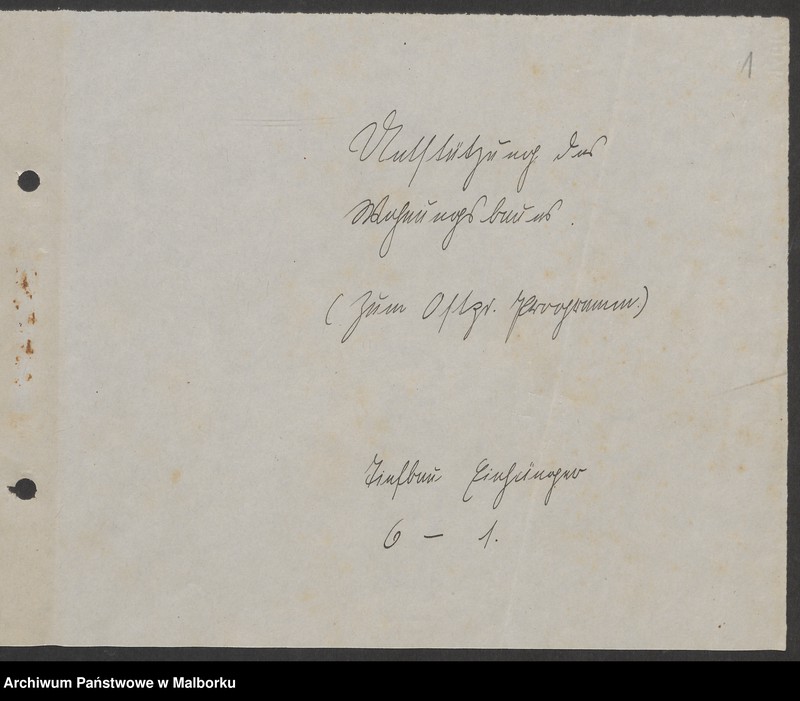 1
Unterstützung des
Wohnungsbaues.
(Zum Ostpr. Programm)
Tiefbau
6 – 1.
Archiwum Państwowe w Malborku